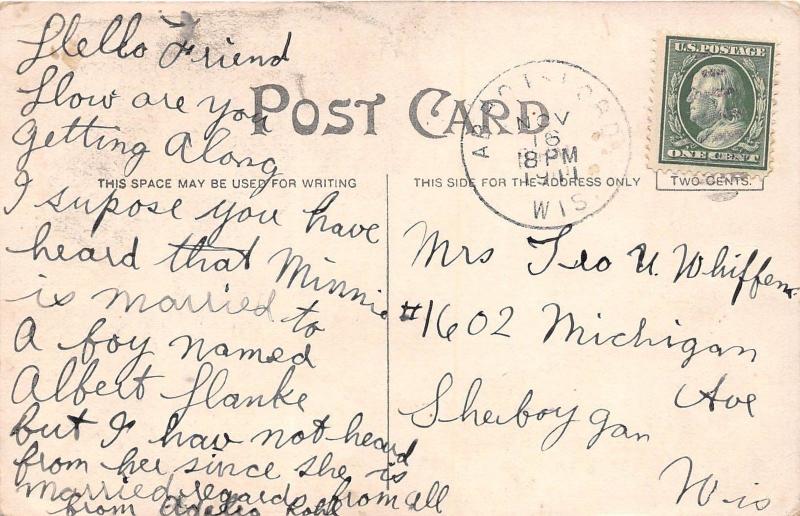 Hello Friend
How are you
getting Along
I supose you have
heard that Minnie
is married to
A boy named
Albert Hanke
but I hav not heard
from her since she is
married, regards from all
from
POST CARD
THIS SPACE MAY BE USED FOR WRITING
THIS SIDE FOR THE ADDRESS ONLY
ABBOTSFORD
NOV
16
8 PM
1911
WIS.
U.S. POSTAGE
ONE CENT
TWO CENTS.
Mrs Geo U. Whiffen
#1602 Michigan
Ave
Sheboygan
Wis